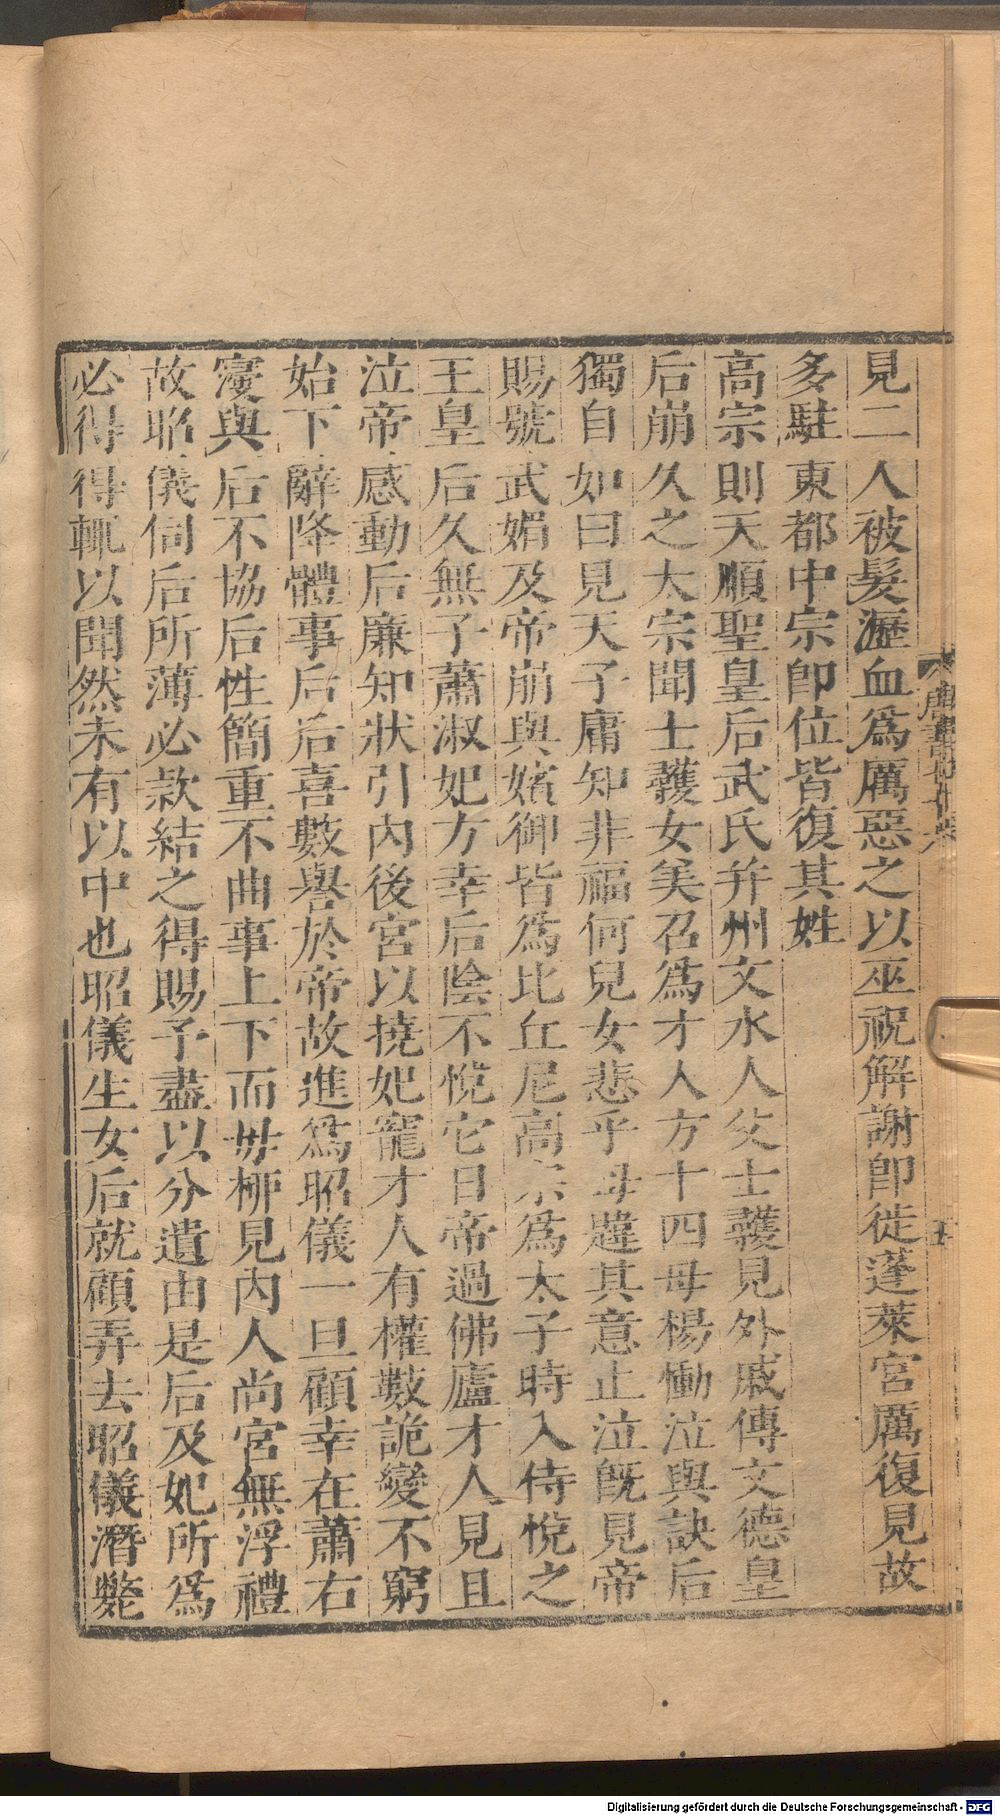 見二人被髮瀝血爲厲惡之以巫祝解謝即徙蓬萊宮厲復見故
多駐東都中宗即位皆復其姓
高宗則天順聖皇后武氏并州文水人父士彠見外戚傳文德皇
后崩久之太宗聞士彠女美召爲才人方十四母楊慟泣與訣后
獨自如曰見天子庸知非福何兒女悲乎母韙其意止泣既見帝
賜號武媚及帝崩與嬪御皆爲比丘尼高宗爲太子時入侍悅之
王皇后久無子蕭淑妃方幸后陰不悅它日帝過佛廬才人見且
泣帝感動后廉知狀引內後宮以撓妃寵才人有權數詭變不窮
始下辭降體事后后喜數譽於帝故進爲昭儀一旦顧幸在蕭右
寖與后不協后性簡重不曲事上下而毋柳見內人尚宮無浮禮
故昭儀伺后所薄必款結之得賜予盡以分遺由是后及妃所爲
必得得輒以聞然未有以中也昭儀生女后就顧弄去昭儀潛斃
Digitalisierung gefördert durch die Deutsche Forschungsgemeinschaft - DFG